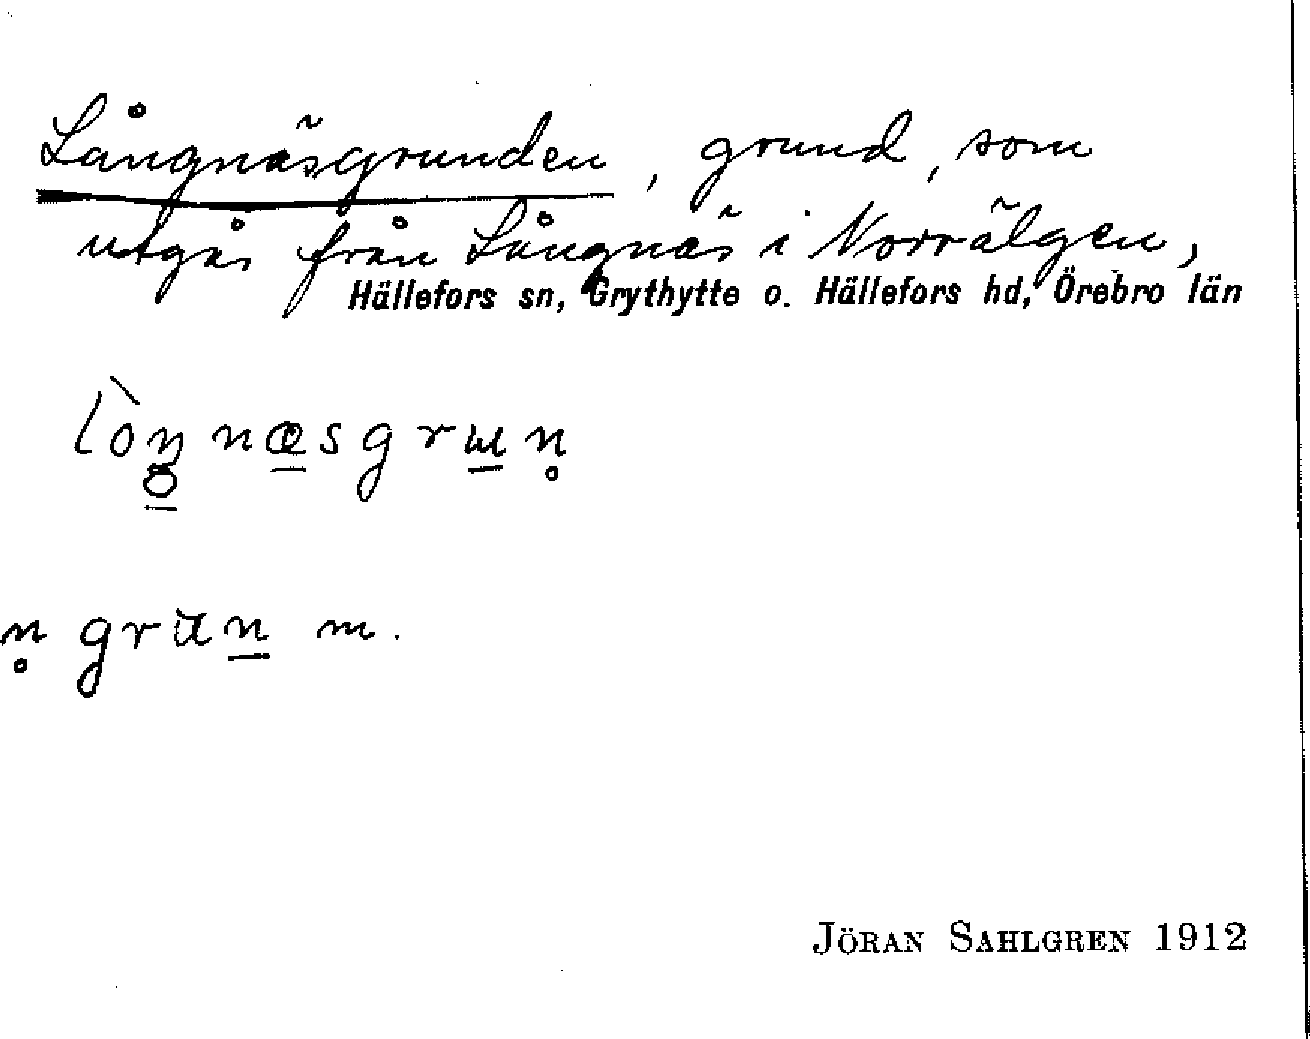 Långnäsgrunden, grund, som
utgår från Långnäs i Norrälgen,
Hällefors sn, Grythytte o. Hällefors hd, Örebro län
lòŋnæsgrɯn̥
n̥ grɯ̀n m.
JÖRAN SAHLGREN 1912